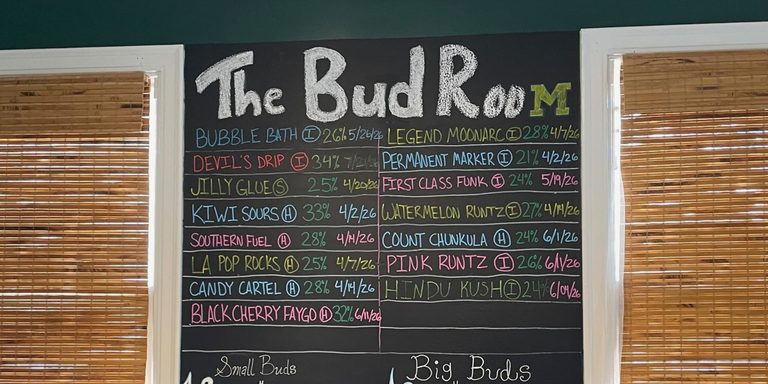 The Bud Room
BUBBLE BATH (I) 26% 5/26/26
DEVIL'S DRIP (I) 34%
JILLY GLUE (S) 25% 4/20/26
KIWI SOURS (H) 33% 4/2/26
SOUTHERN FUEL (H) 28% 4/14/26
LA POP ROCKS (H) 25% 4/7/26
CANDY CARTEL (H) 28% 4/14/26
BLACK CHERRY FAYGO (H) 32% 6/11/26
LEGEND MOONARC (I) 28% 4/7/26
PERMANENT MARKER (I) 21% 4/2/26
FIRST CLASS FUNK (I) 24% 5/19/26
WATERMELON RUNTZ (I) 27% 4/14/26
COUNT CHUNKULA (H) 24% 6/1/26
PINK RUNTZ (I) 26% 6/1/26
HINDU KUSH (I) 24% 6/04/26
Small Buds
Big Buds